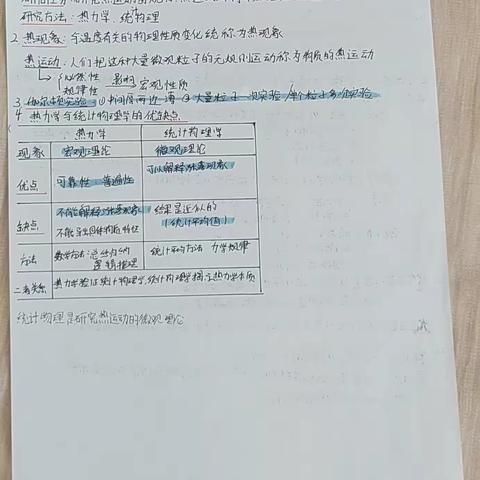 研究方法：热力学、统计物理
2 热现象：与温度有关的物理性质变化统称为热现象
热运动：人们把这种大量微观粒子的无规则运动称为物质的热运动
偶然性 影响 宏观性质
规律性
3 伽尔顿实验 ①中间厚两边薄 ②大量粒子一次实验/单个粒子多次实验
4 热力学与统计物理学的优缺点
热力学 统计物理学
现象 宏观理论 微观理论
优点 可靠性 普遍性 可以解释涨落现象
缺点 不能解释涨落现象 结果是近似的
不能导出具体物质特性 （统计平均值）
方法 数学方法：总结归纳 统计平均方法 力学规律
逻辑推理
二者关系 热力学验证统计物理学，统计物理学揭示热力学本质
统计物理是研究热运动的微观理论